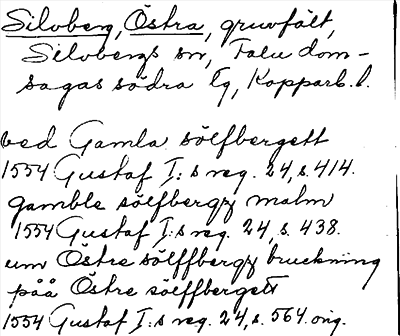 Silvberg, Östra, gruvfält,
Silvbergs sn, Falu dom-
sagas södra tg, Kopparb. l.
ved Gamla sölfbergett
1554 Gustaf I:s reg. 24, s. 414.
gamble sölfbergz malm
1554 Gustaf I:s reg. 24, s. 438.
um Östre sölffbergz bruckning
påå Östre sölffbergett
1554 Gustaf I:s reg. 24, s. 564. orig.